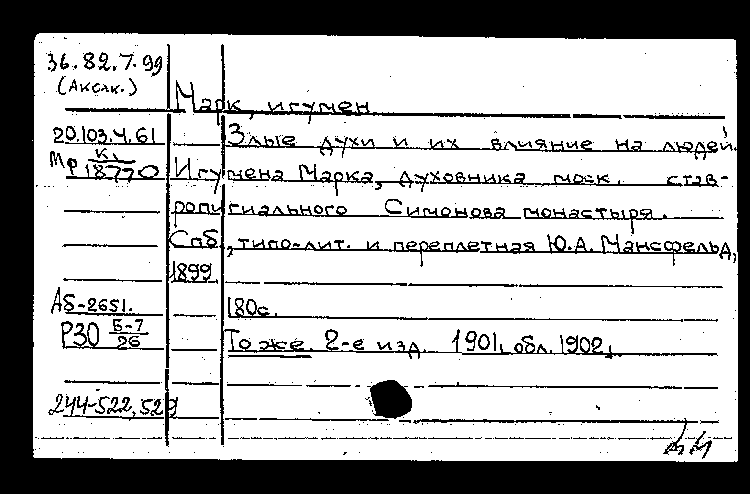 36.82.7.99
(Аксак.)
Марк, игумен.
20.103.4.61
Злые духи и их влияние на людей.
Мр К
18770
Игумена Марка, духовника моск. став-
ропигиального Симонова монастыря.
Спб., типо-лит. и переплетная Ю.А. Мансфельд,
1899
А5-2651.
180с.
Р30 Б-7
26
То же. 2-е изд. 1901, обл. 1902.
244-522,529